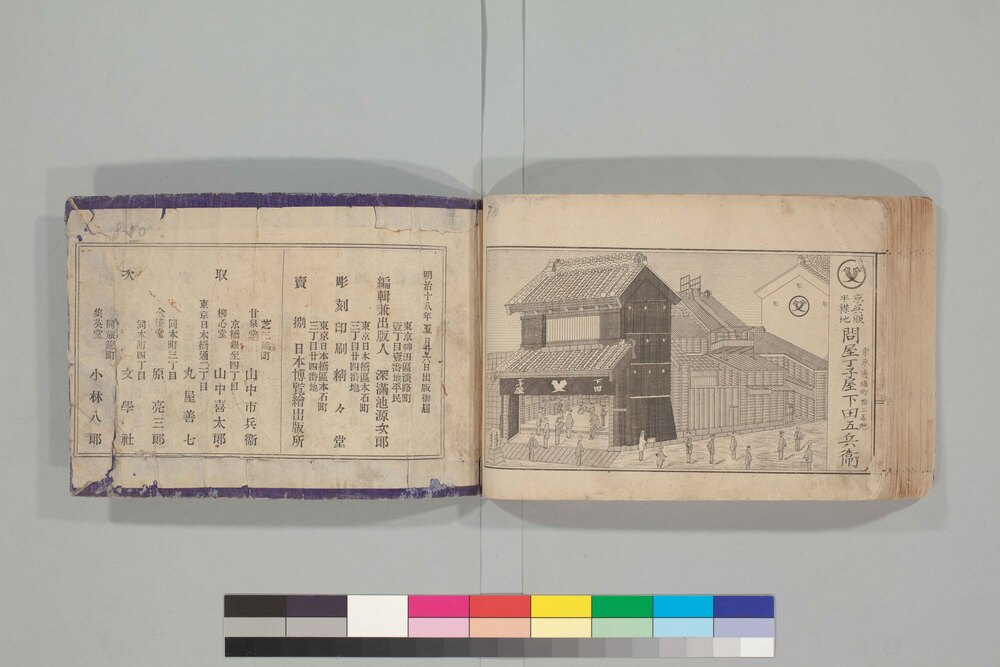 京呉服
半襟地
問屋丁子屋下田五兵衞
丁子屋
下田
明治十八年五月廿六日出版御届
東京神田區淡路町
壹丁目壹番地平民
編輯兼出版人 深滿池源次郎
東京日本橋區本石町
三丁目廿四番地
彫刻印刷 精々堂
東京日本橋區本石町
三丁目廿四番地
賣捌 日本博覽繪出版所
取次
甘泉堂 山中市兵衞
京橋銀坐四丁目
柳心堂 山中喜太郎
東京日本橋通三丁目
丸屋善七
同本町三丁目
金港堂 原亮三郎
同本町四丁目
文學社
集英堂 小林八郎